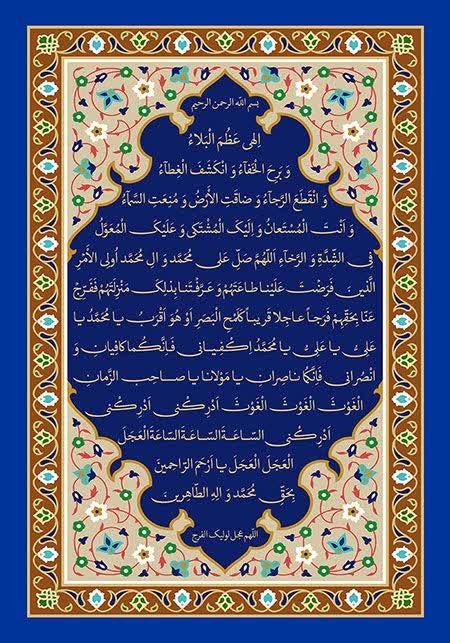 بسم الله الرحمن الرحیم
اِلٰهی عَظُمَ الْبَلاءُ
وَ بَرِحَ الْخَفآءُ وَ انْکَشَفَ الْغِطآءُ
وَ انْقَطَعَ الرَّجآءُ وَ ضاقَتِ الْأَرْضُ وَ مُنِعَتِ السَّمآءُ
وَ اَنْتَ الْمُسْتَعانُ وَ اِلَیْکَ الْمُشْتَکی وَ عَلَیْکَ الْمُعَوَّلُ
فِی الشِّدَّةِ وَ الرَّخآءِ اَللّهُمَّ صَلِّ عَلی مُحَمَّدٍ وَ الِ مُحَمَّدٍ اُولِی الْأَمْرِ
الَّذینَ فَرَضْتَ عَلَیْنا طاعَتَهُمْ وَ عَرَّفْتَنا بِذلِکَ مَنْزِلَتَهُمْ فَفَرِّجْ
عَنّا بِحَقِّهِمْ فَرَجاً عاجِلاً قَریباً کَلَمْحِ الْبَصَرِ اَوْ هُوَ اَقْرَبُ یا مُحَمَّدُ یا
عَلِیُّ یا عَلِیُّ یا مُحَمَّدُ اِکْفِیانی فَاِنَّکُما کافِیانِ وَ
انْصُرانی فَاِنَّکُما ناصِرانِ یا مَوْلانا یا صاحِبَ الزَّمانِ
الْغَوْثَ الْغَوْثَ الْغَوْثَ اَدْرِکْنی اَدْرِکْنی
اَدْرِکْنی السّاعَةَ السّاعَةَ السّاعَةَ الْعَجَلَ
الْعَجَلَ الْعَجَلَ یا اَرْحَمَ الرّاحِمینَ
بِحَقِّ مُحَمَّدٍ وَ الِهِ الطّاهِرینَ
اللهم عجل لولیک الفرج